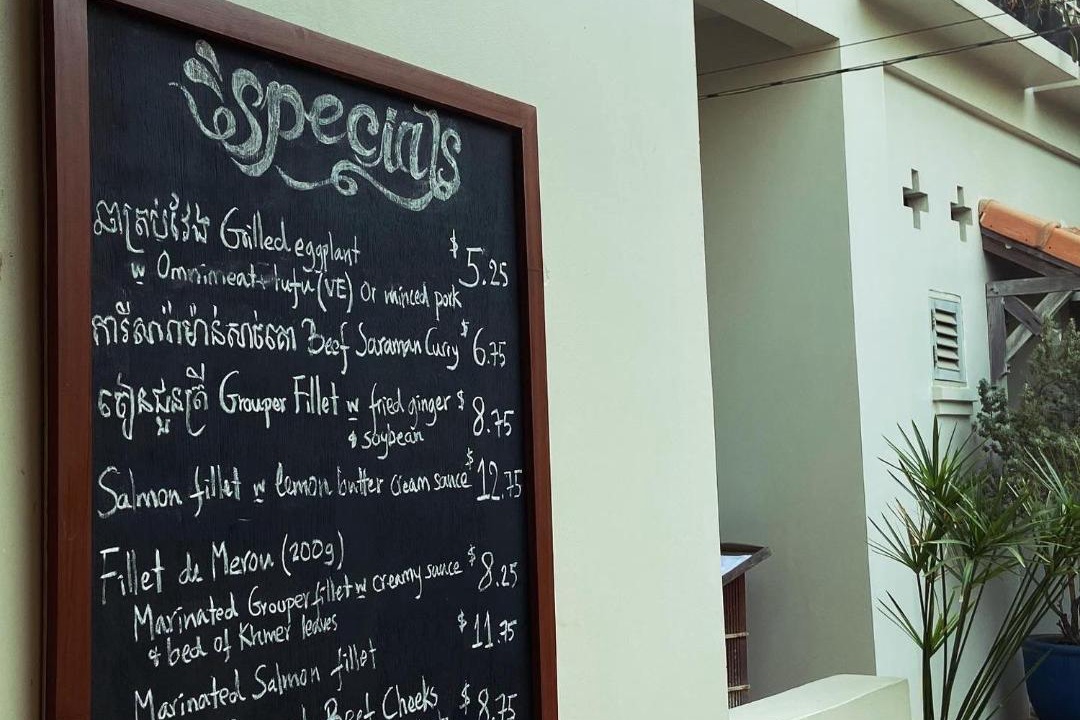 Specials
ឆាត្រប់វែង Grilled eggplant $5.25
w Omnimeat-tufu (VE) Or minced pork
ការីសារ៉ាម៉ាន់សាច់គោ Beef Saraman Curry $6.75
ចៀនជួនត្រី Grouper Fillet w fried ginger $8.75
& soybean
Salmon fillet w lemon butter cream sauce $12.75
Fillet de Merou (200g)
Marinated Grouper fillet w creamy sauce $8.25
& bed of Khmer leaves $11.75
Marinated Salmon fillet
Beef Cheeks $8.75